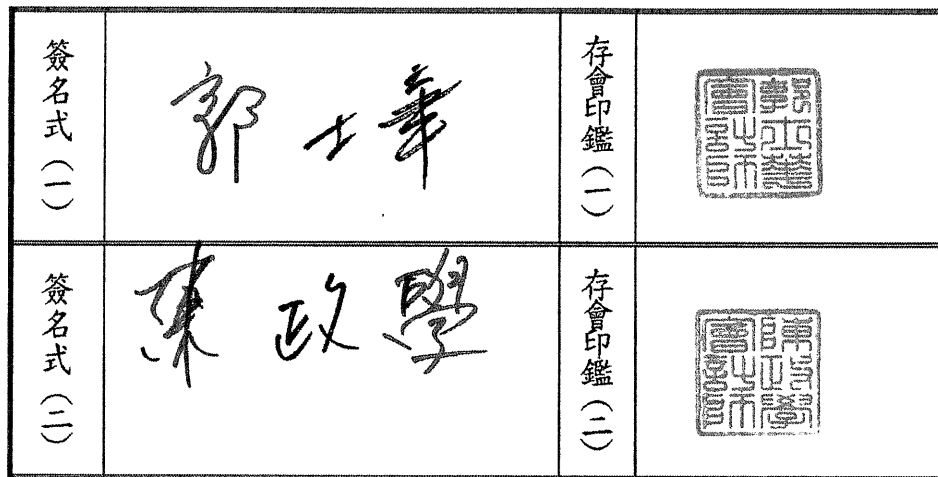 簽名式（一）
郭士華
存會印鑑（一）
郭士華會計師
簽名式（二）
陳政學
存會印鑑（二）
陳政學會計師